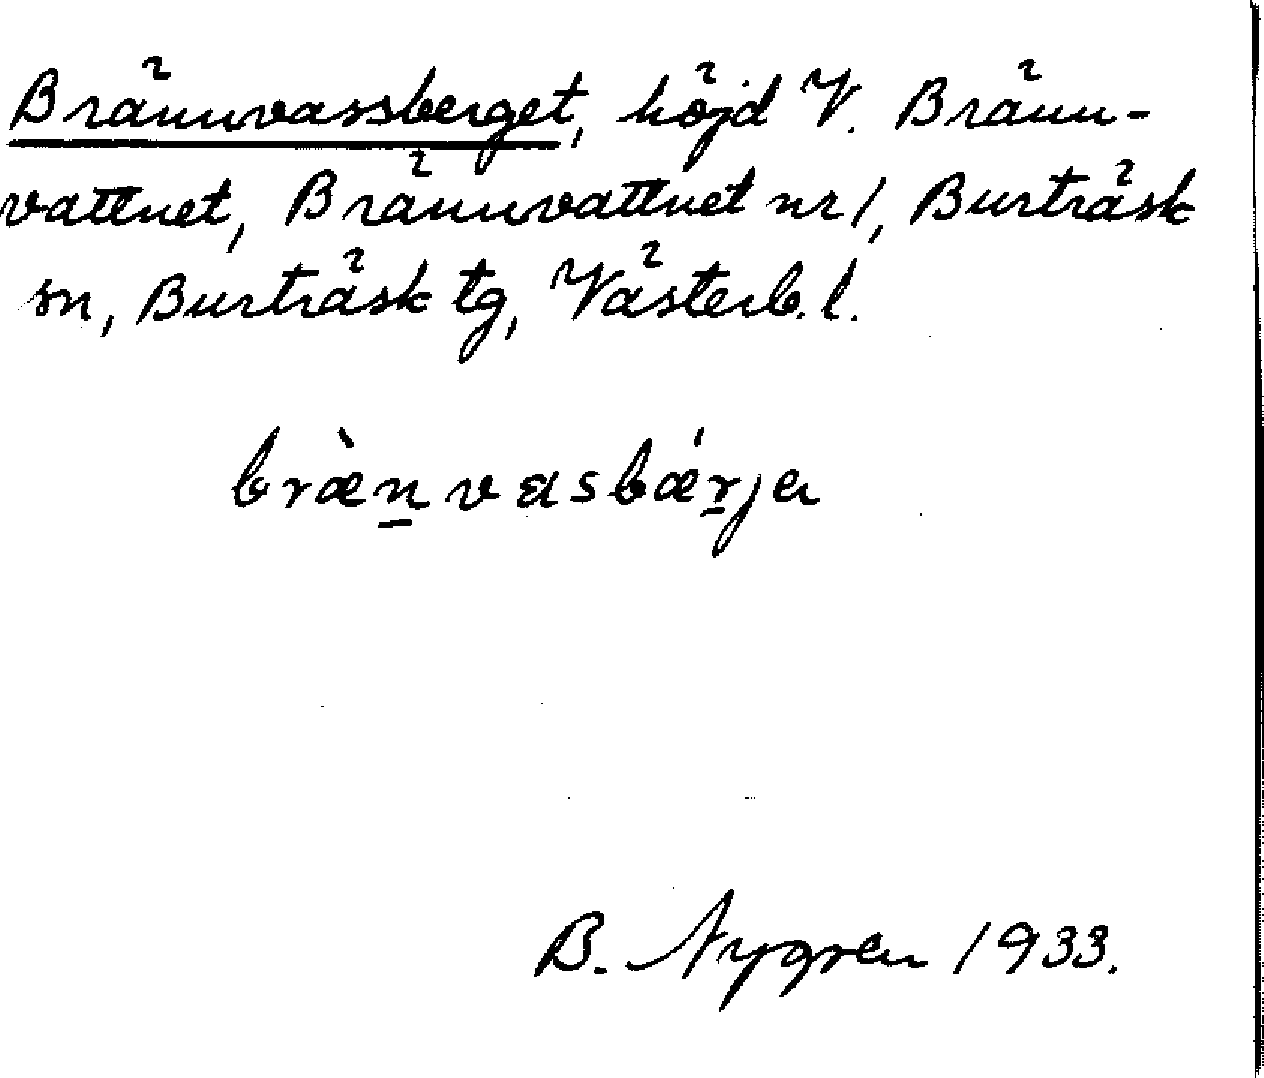 Brännvassberget, höjd V. Bränn-
vattnet, Brännvattnet nr 1, Burträsk
sn, Burträsk tg, Västerb. l.
bræ̀n̲vasbǽr̲ja
B. Nygren 1933.